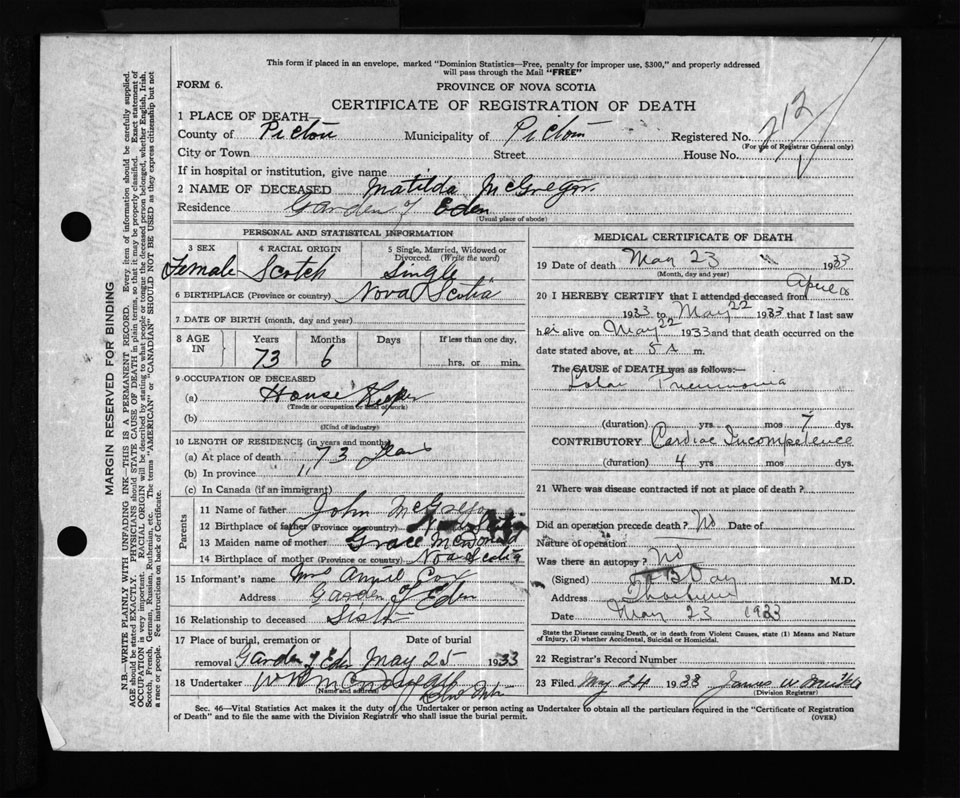 This form if placed in an envelope, marked "Dominion Statistics—Free, penalty for improper use, $300," and properly addressed
will pass through the Mail "FREE"
FORM 6.
PROVINCE OF NOVA SCOTIA
CERTIFICATE OF REGISTRATION OF DEATH
1 PLACE OF DEATH
County of Pictou Municipality of Pictou Registered No. 212
(For use of Registrar General only)
City or Town Street House No.
If in hospital or institution, give name
2 NAME OF DECEASED Matilda McGregor
Residence Garden of Eden
(Usual place of abode)
PERSONAL AND STATISTICAL INFORMATION
3 SEX 4 RACIAL ORIGIN 5 Single, Married, Widowed or Divorced. (Write the word)
Female Scotch Single
6 BIRTHPLACE (Province or country) Nova Scotia
7 DATE OF BIRTH (month, day and year)
8 AGE IN Years Months Days If less than one day,
73 6 hrs. or min.
9 OCCUPATION OF DECEASED
(a) House Keeper
(Trade or occupation or kind of work)
(b)
(Kind of industry)
10 LENGTH OF RESIDENCE (in years and months)
(a) At place of death 73 Years
(b) In province "
(c) In Canada (if an immigrant)
Parents
11 Name of father John McGregor
12 Birthplace of father (Province or country) Nova Scotia
13 Maiden name of mother Grace McDonald
14 Birthplace of mother (Province or country) Nova Scotia
15 Informant's name Mrs Annie Cox
Address Garden of Eden
16 Relationship to deceased Sister
17 Place of burial, cremation or Date of burial
removal Garden of Eden May 25 1933
18 Undertaker
(Name and address)
MEDICAL CERTIFICATE OF DEATH
19 Date of death May 23 1933
(Month, day and year)
20 I HEREBY CERTIFY that I attended deceased from April
1933 to May 22 1933 that I last saw
her alive on May 22 1933 and that death occurred on
date stated above, at 5 A m.
The CAUSE of DEATH was as follows:—
Lobar Pneumonia
(duration) yrs. mos 7 dys.
CONTRIBUTORY Cardiac Incompetence
(duration) 4 yrs. mos. dys.
21 Where was disease contracted if not at place of death?
Did an operation precede death? No Date of
Nature of operation
Was there an autopsy? No
(Signed) Day M.D.
Address Thorburn
Date May 23 1933
State the Disease causing Death, or in death from Violent Causes, state (1) Means and Nature
of Injury, (2) whether Accidental, Suicidal or Homicidal.
22 Registrar's Record Number
23 Filed May 24 1933 James W
(Division Registrar)
Sec. 46—Vital Statistics Act makes it the duty of the Undertaker or person acting as Undertaker to obtain all the particulars required in the "Certificate of Registration
of Death" and to file the same with the Division Registrar who shall issue the burial permit.
(OVER)
MARGIN RESERVED FOR BINDING
N.B.—WRITE PLAINLY WITH UNFADING INK—THIS IS A PERMANENT RECORD. Every item of information should be carefully supplied.
AGE should be stated EXACTLY. PHYSICIANS should STATE CAUSE OF DEATH in plain terms, so that it may be properly classified. Exact statement of
OCCUPATION is very important. RACIAL ORIGIN will be described by stating to what people or tongue the deceased person belonged, whether English, Irish,
Scotch, French, German, Russian, Ruthenian, etc. The terms "AMERICAN" or "CANADIAN" SHOULD NOT BE USED as they express citizenship but not
a race or people. See instructions on back of Certificate.